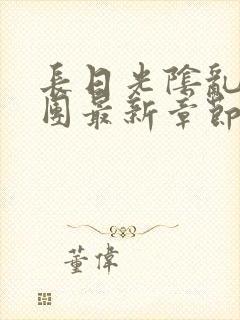 長日光陰亂
團最新章節
董偉